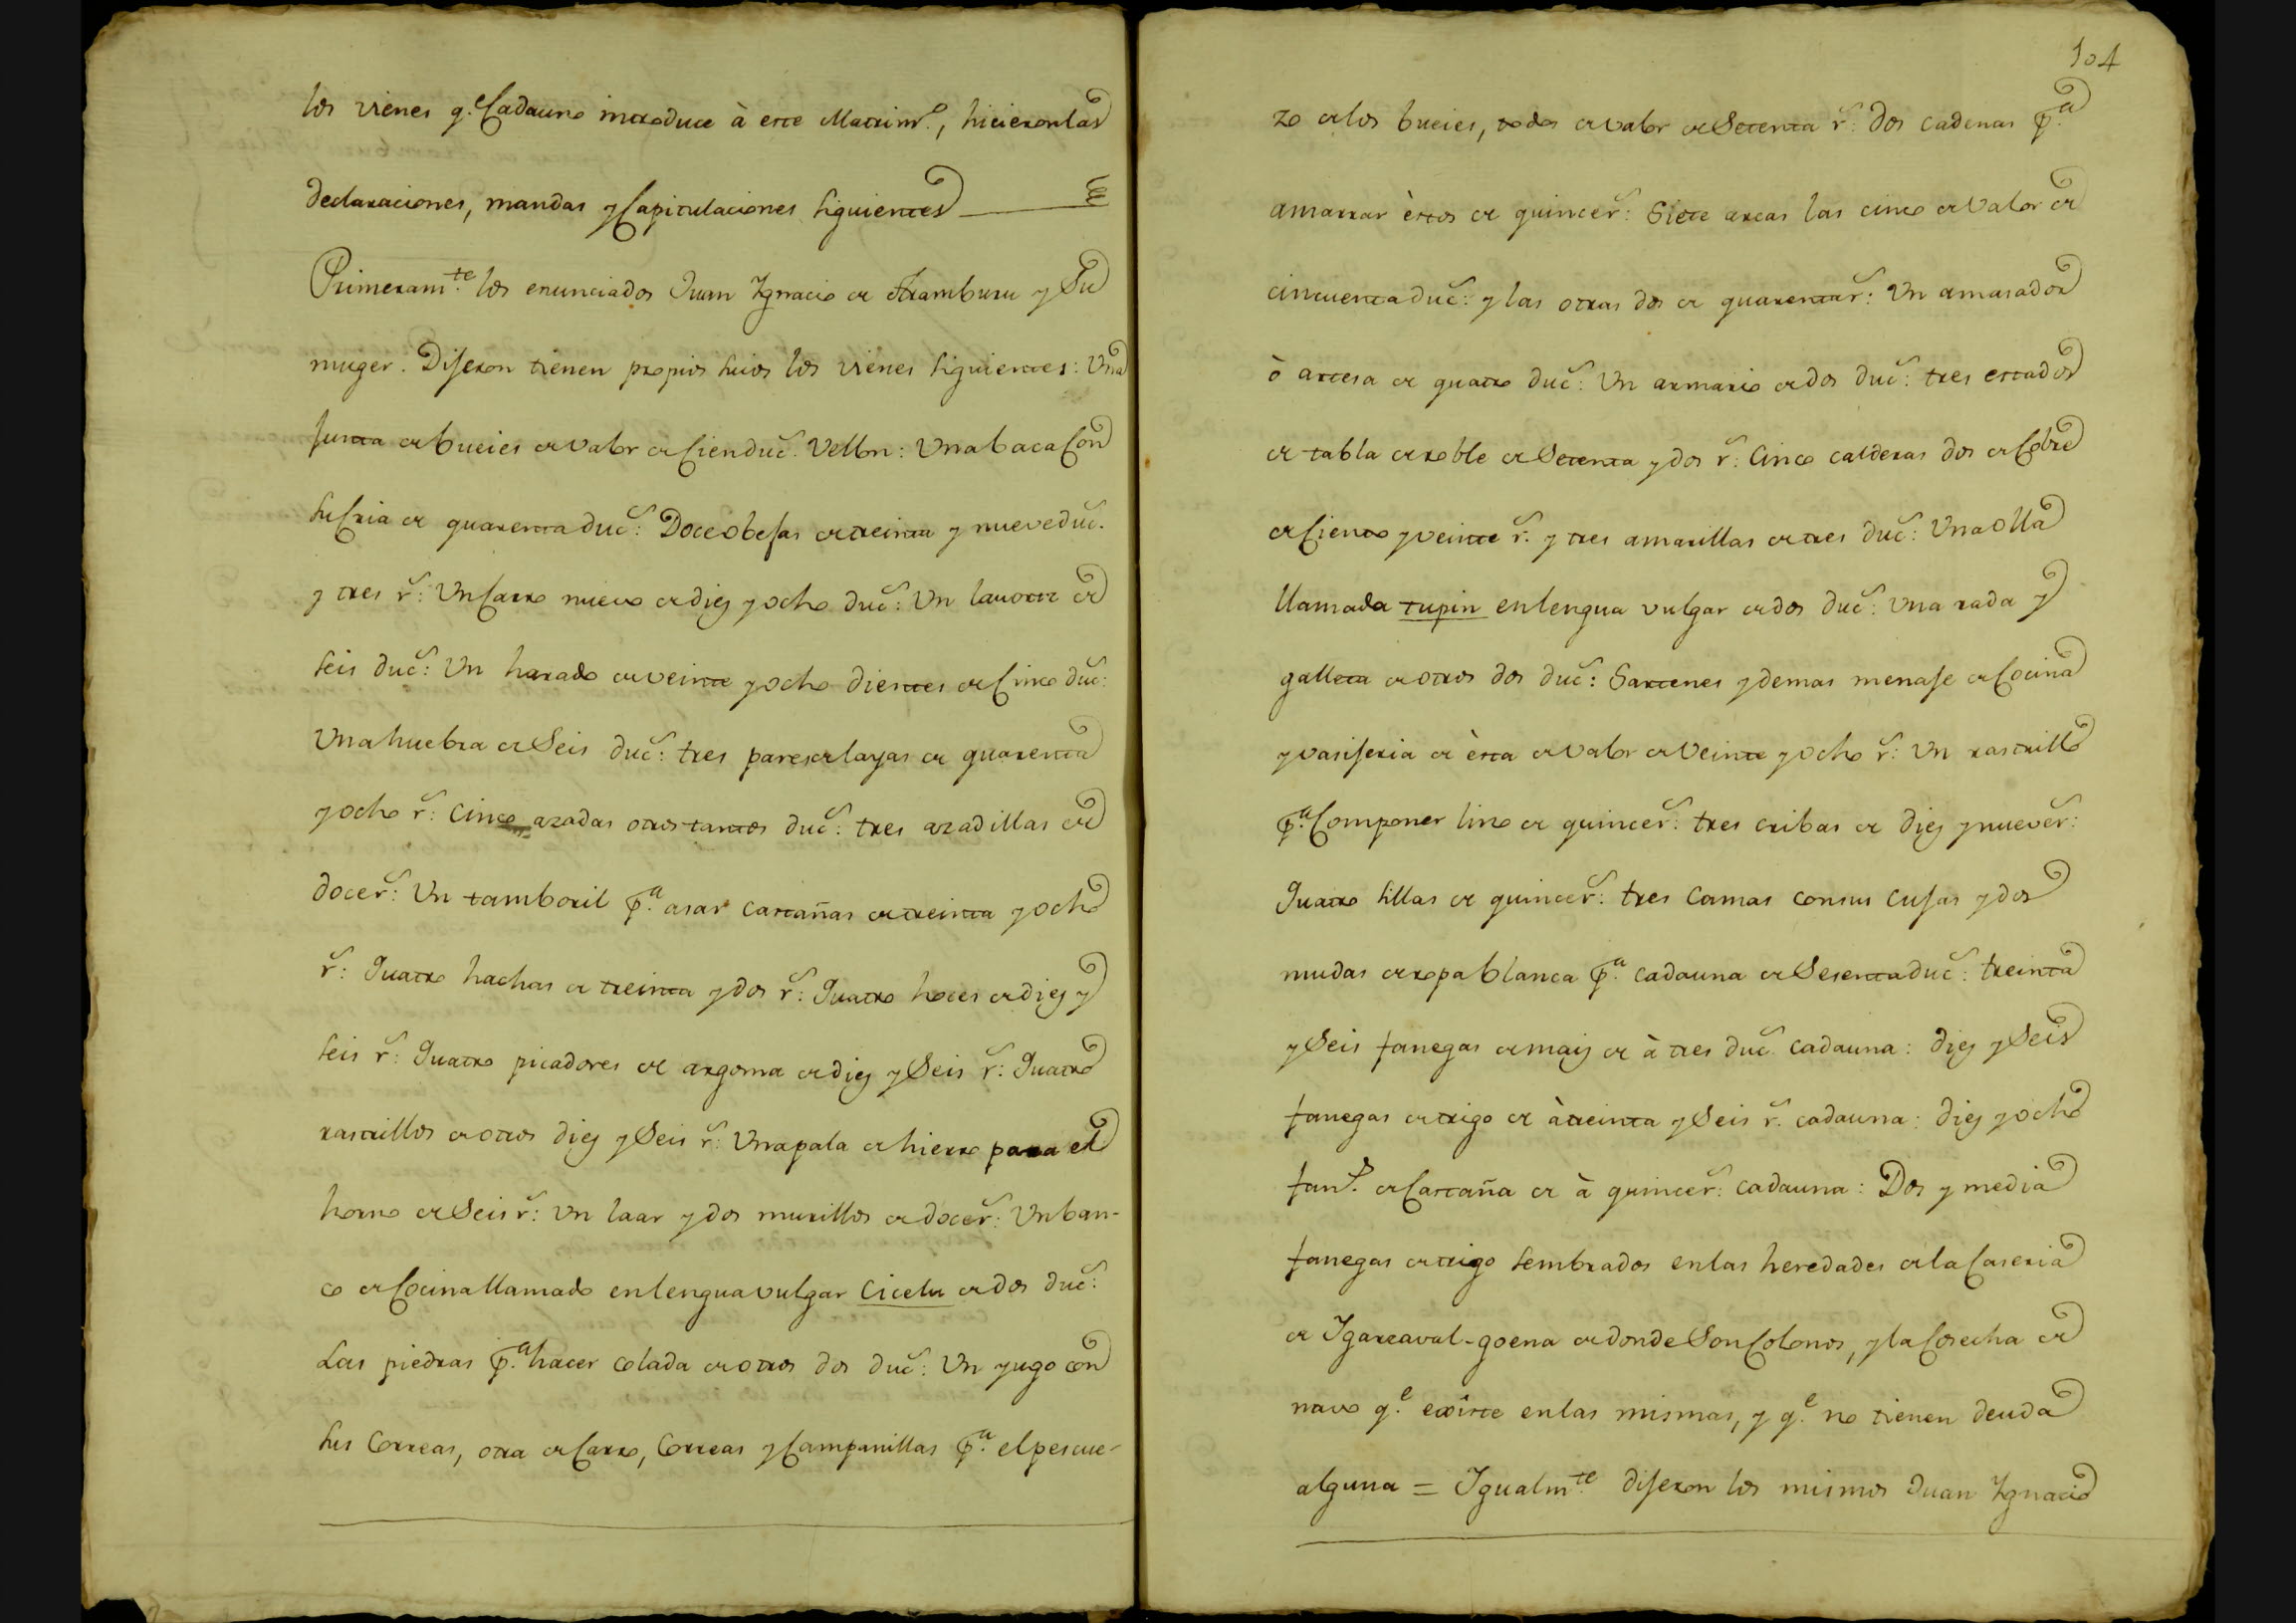 los vienes q.e Cadauno introduce à este Matrim.o, hicieron las
declaraciones, mandas y Capitulaciones siguientes
Primeram.te los enunciados Juan Ygnacio de Aramburu y Su
muger. Dijeron tienen propios suios los vienes siguientes: Una
junta de bueies de valor de Cien duc.s Vellon: Una baca Con
su Cria de quarenta duc.s: Doce obejas de treinta y nueve duc.s
y tres r.s: Un Carro nuevo de diez y ocho duc.s: Un lauorre de
seis duc.s: Un harado de veinte y ocho dientes de Cinco duc.s:
Una huebra de Seis duc.s: tres pares de layas de quarenta
y ocho r.s: Cinco azadas otros tantos duc.s: tres azadillas de
doce r.s: Un tamboril p.a asar castañas de treinta y ocho
r.s: Quatro hachas de treinta y dos r.s: Quatro hoces de diez y
seis r.s: Quatro picadores de argoma de diez y Seis r.s: Quatro
rastrillos de otros diez y Seis r.s: Una pala de hierro para el
horno de Seis r.s: Un laar y dos murillos de doce r.s: Un ban-
co de Cocina llamado en lengua vulgar Cicelu de dos duc.s:
Las piedras p.a hacer colada de otros dos duc.s: Un yugo con
sus Correas, otra de Carro, Correas y Campanillas p.a el pescue-
104
zo de los bueies, todos de valor de Setenta r.s: dos cadenas p.a
amarrar èstos de quince r.s: Siete arcas las cinco de Valor de
cincuenta duc.s: y las otras dos de quarenta r.s: Un amasador
ò artesa de quatro duc.s: Un armario de dos duc.s: tres estados
de tabla de roble de Setenta y dos r.s: Cinco calderas dos de Cobre
de Ciento y veinte r.s y tres amarillas de tres duc.s: Una olla
llamada tupin en lengua vulgar de dos duc.s: Una rada y
galleta de otros dos duc.s: Sartenes y demas menaje de Cocina
y vasijeria de èsta de valor de Veinte y ocho r.s: Un rastrillo
p.a Componer lino de quince r.s: tres cribas de diez y nueve r.s:
Quatro sillas de quince r.s: tres Camas con sus cujas y dos
mudas de ropa blanca p.a cadauna de Sesenta duc.s: treinta
y Seis fanegas de maiz de à tres duc.s cadauna: diez y Seis
fanegas de trigo de à treinta y Seis r.s cadauna: diez y ocho
fan.s de Castaña de à quince r.s: cadauna: Dos y media
fanegas de trigo sembrados en las heredades de la Caseria
de Ygarzaval-goena de donde Son Colonos, y la Cosecha de
navo q.e existe en las mismas, y q.e no tienen deuda
alguna = Ygualm.te dijeron los mismos Juan Ygnacio